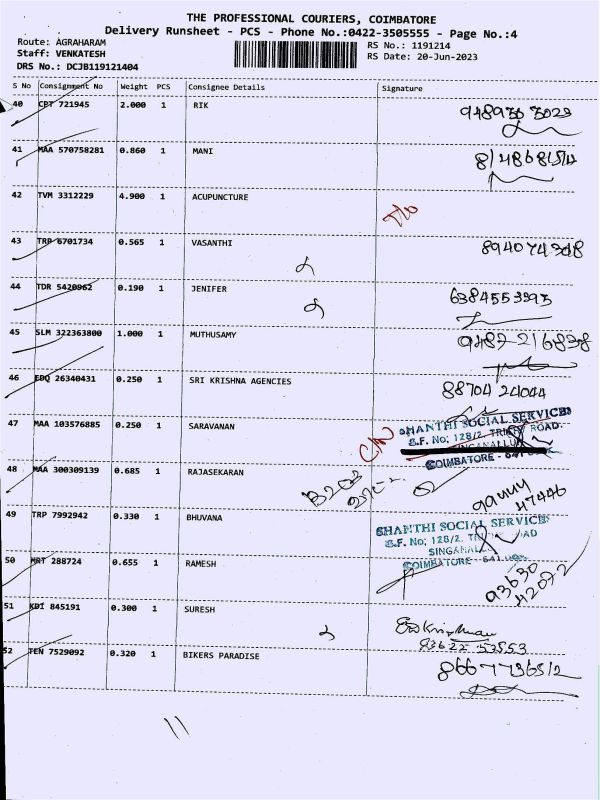 THE PROFESSIONAL COURIERS, COIMBATORE
Delivery Runsheet - PCS - Phone No.:0422-3505555 - Page No.:4
Route: AGRAHARAM RS No.: 1191214
Staff: VENKATESH RS Date: 20-Jun-2023
DRS No.: DCJB119121404
S No Consignment No Weight PCS Consignee Details Signature
40 CPT 721945 2.000 1 RIK
41 MAA 570758281 0.860 1 MANI
42 TVM 3312229 4.900 1 ACUPUNCTURE
43 TRP 6701734 0.565 1 VASANTHI
8940774308
44 TDR 5420962 0.190 1 JENIFER
6384553993
45 SLM 322363800 1.000 1 MUTHUSAMY
9487-216838
46 EDQ 26340431 0.250 1 SRI KRISHNA AGENCIES
88704 24044
47 MAA 103576885 0.250 1 SARAVANAN
SHANTHI SOCIAL SERVICES
S.F. No; 128/2, TRICHY ROAD.
SINGANALLUR
COIMBATORE - 641
48 MAA 300309139 0.685 1 RAJASEKARAN
47446
49 TRP 7992942 0.330 1 BHUVANA
SHANTHI SOCIAL SERVICES
S.F. No; 128/2, ROAD
COIMBATORE
50 MRT 288724 0.655 1 RAMESH
93630
42072
51 KDI 845191 0.300 1 SURESH
52 TEN 7529092 0.320 1 BIKERS PARADISE
11